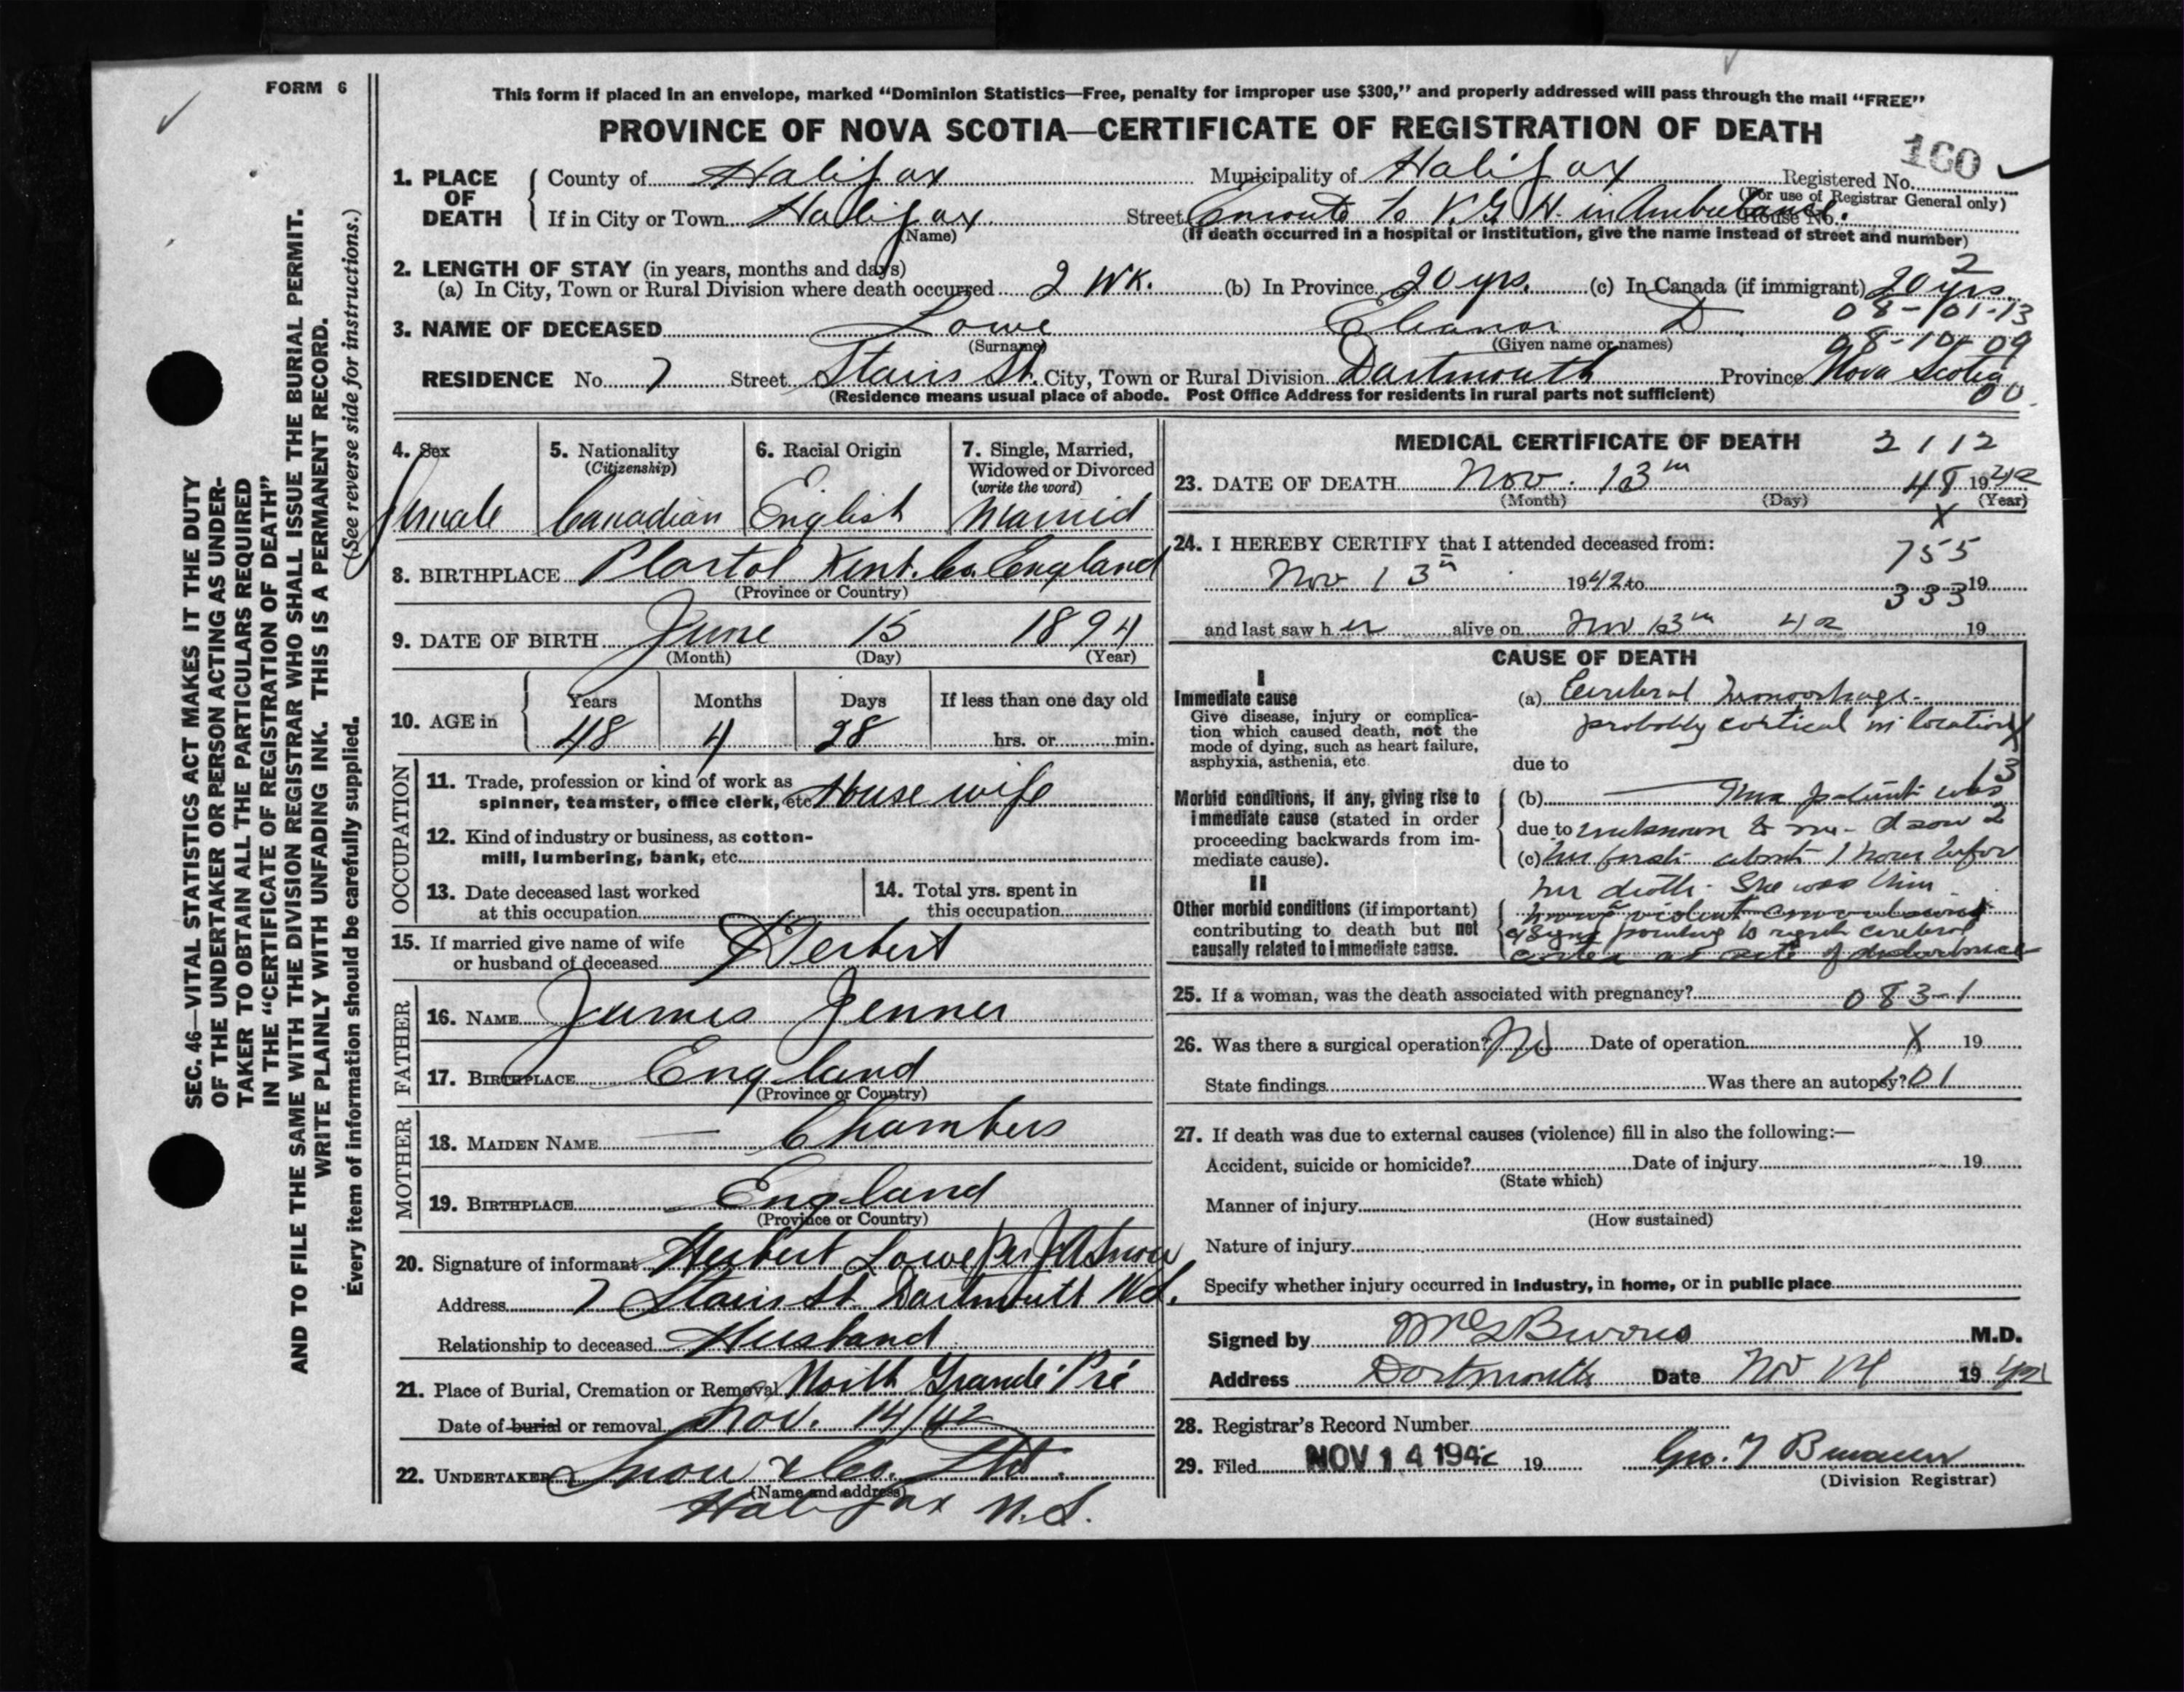 FORM 6
This form if placed in an envelope, marked "Dominion Statistics—Free, penalty for improper use $300," and properly addressed will pass through the mail "FREE"
PROVINCE OF NOVA SCOTIA—CERTIFICATE OF REGISTRATION OF DEATH
160
1. PLACE OF DEATH
County of Halifax Municipality of Halifax Registered No.
(For use of Registrar General only)
If in City or Town Halifax Street Enroute to V.G.H. in Ambulance. House No.
(Name) (If death occurred in a hospital or institution, give the name instead of street and number)
2. LENGTH OF STAY (in years, months and days) 2
(a) In City, Town or Rural Division where death occurred 2 Wk. (b) In Province 20 yrs. (c) In Canada (if immigrant) 20 yrs.
08-101-13
3. NAME OF DECEASED Lowe Eleanor D.
(Surname) (Given name or names) 08-10-09
RESIDENCE No. 7 Street Stairs St. City, Town or Rural Division Dartmouth Province Nova Scotia
(Residence means usual place of abode. Post Office Address for residents in rural parts not sufficient) 00
4. Sex Female
5. Nationality (Citizenship) Canadian
6. Racial Origin English
7. Single, Married, Widowed or Divorced (write the word) Married
8. BIRTHPLACE Plastol Kent. Co. England
(Province or Country)
9. DATE OF BIRTH June 15 1894
(Month) (Day) (Year)
10. AGE in Years Months Days If less than one day old
48 4 28 hrs. or min.
OCCUPATION
11. Trade, profession or kind of work as
spinner, teamster, office clerk, etc. House wife
12. Kind of industry or business, as cotton-
mill, lumbering, bank, etc.
13. Date deceased last worked
at this occupation
14. Total yrs. spent in
this occupation
15. If married give name of wife
or husband of deceased Herbert
FATHER
16. NAME James Jenner
17. BIRTHPLACE England
(Province or Country)
MOTHER
18. MAIDEN NAME — Chambers
19. BIRTHPLACE England
(Province or Country)
20. Signature of informant Herbert Lowe Per Snow
Address 7 Stairs St. Dartmouth N.S.
Relationship to deceased Husband
21. Place of Burial, Cremation or Removal North Grande Pré
Date of burial or removal Nov. 14/42
22. UNDERTAKER Snow & Co. Ltd.
(Name and address)
Halifax N.S.
MEDICAL CERTIFICATE OF DEATH 2112
23. DATE OF DEATH Nov. 13th 48 1942
(Month) (Day) (Year)
X
24. I HEREBY CERTIFY that I attended deceased from: 755
Nov 13th 1942 to 19
333
and last saw her alive on Nov 13th 42 19
CAUSE OF DEATH
I
Immediate cause
Give disease, injury or complica-
tion which caused death, not the
mode of dying, such as heart failure,
asphyxia, asthenia, etc.
(a) Cerebral hemorrhage.
probably cortical in location
due to
13
Morbid conditions, if any, giving rise to
immediate cause (stated in order
proceeding backwards from im-
mediate cause).
(b) — This patient was
due to unknown to me - I saw 2
(c) her first about 1 hour before
her death. She was then
II
Other morbid conditions (if important)
contributing to death but not
causally related to immediate cause.
having violent convulsions
& signs pointing to right cerebral
cortex as site of disturbance
25. If a woman, was the death associated with pregnancy? 083-1
26. Was there a surgical operation? No Date of operation X 19
State findings Was there an autopsy? 601
27. If death was due to external causes (violence) fill in also the following:—
Accident, suicide or homicide? Date of injury 19
(State which)
Manner of injury
(How sustained)
Nature of injury
Specify whether injury occurred in Industry, in home, or in public place
Signed by Burris M.D.
Address Dartmouth Date Nov 14 1942
28. Registrar's Record Number
29. Filed NOV 14 1942 19 Geo. T
(Division Registrar)
SEC. 46—VITAL STATISTICS ACT MAKES IT THE DUTY
OF THE UNDERTAKER OR PERSON ACTING AS UNDER-
TAKER TO OBTAIN ALL THE PARTICULARS REQUIRED
IN THE "CERTIFICATE OF REGISTRATION OF DEATH"
AND TO FILE THE SAME WITH THE DIVISION REGISTRAR WHO SHALL ISSUE THE BURIAL PERMIT.
WRITE PLAINLY WITH UNFADING INK. THIS IS A PERMANENT RECORD.
Every item of information should be carefully supplied. (See reverse side for instructions.)